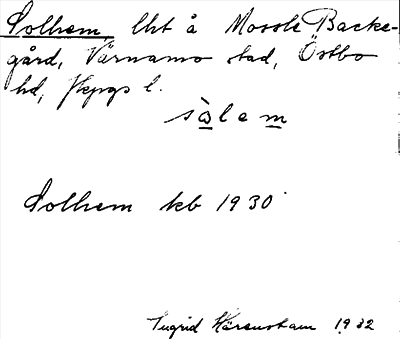 Solhem, lht å Mossle Backe-
gård, Värnamo stad, Östbo
hd, Jkpgs l.
sàlem
Solhem kb 1930
Ingrid Härenstam 1932